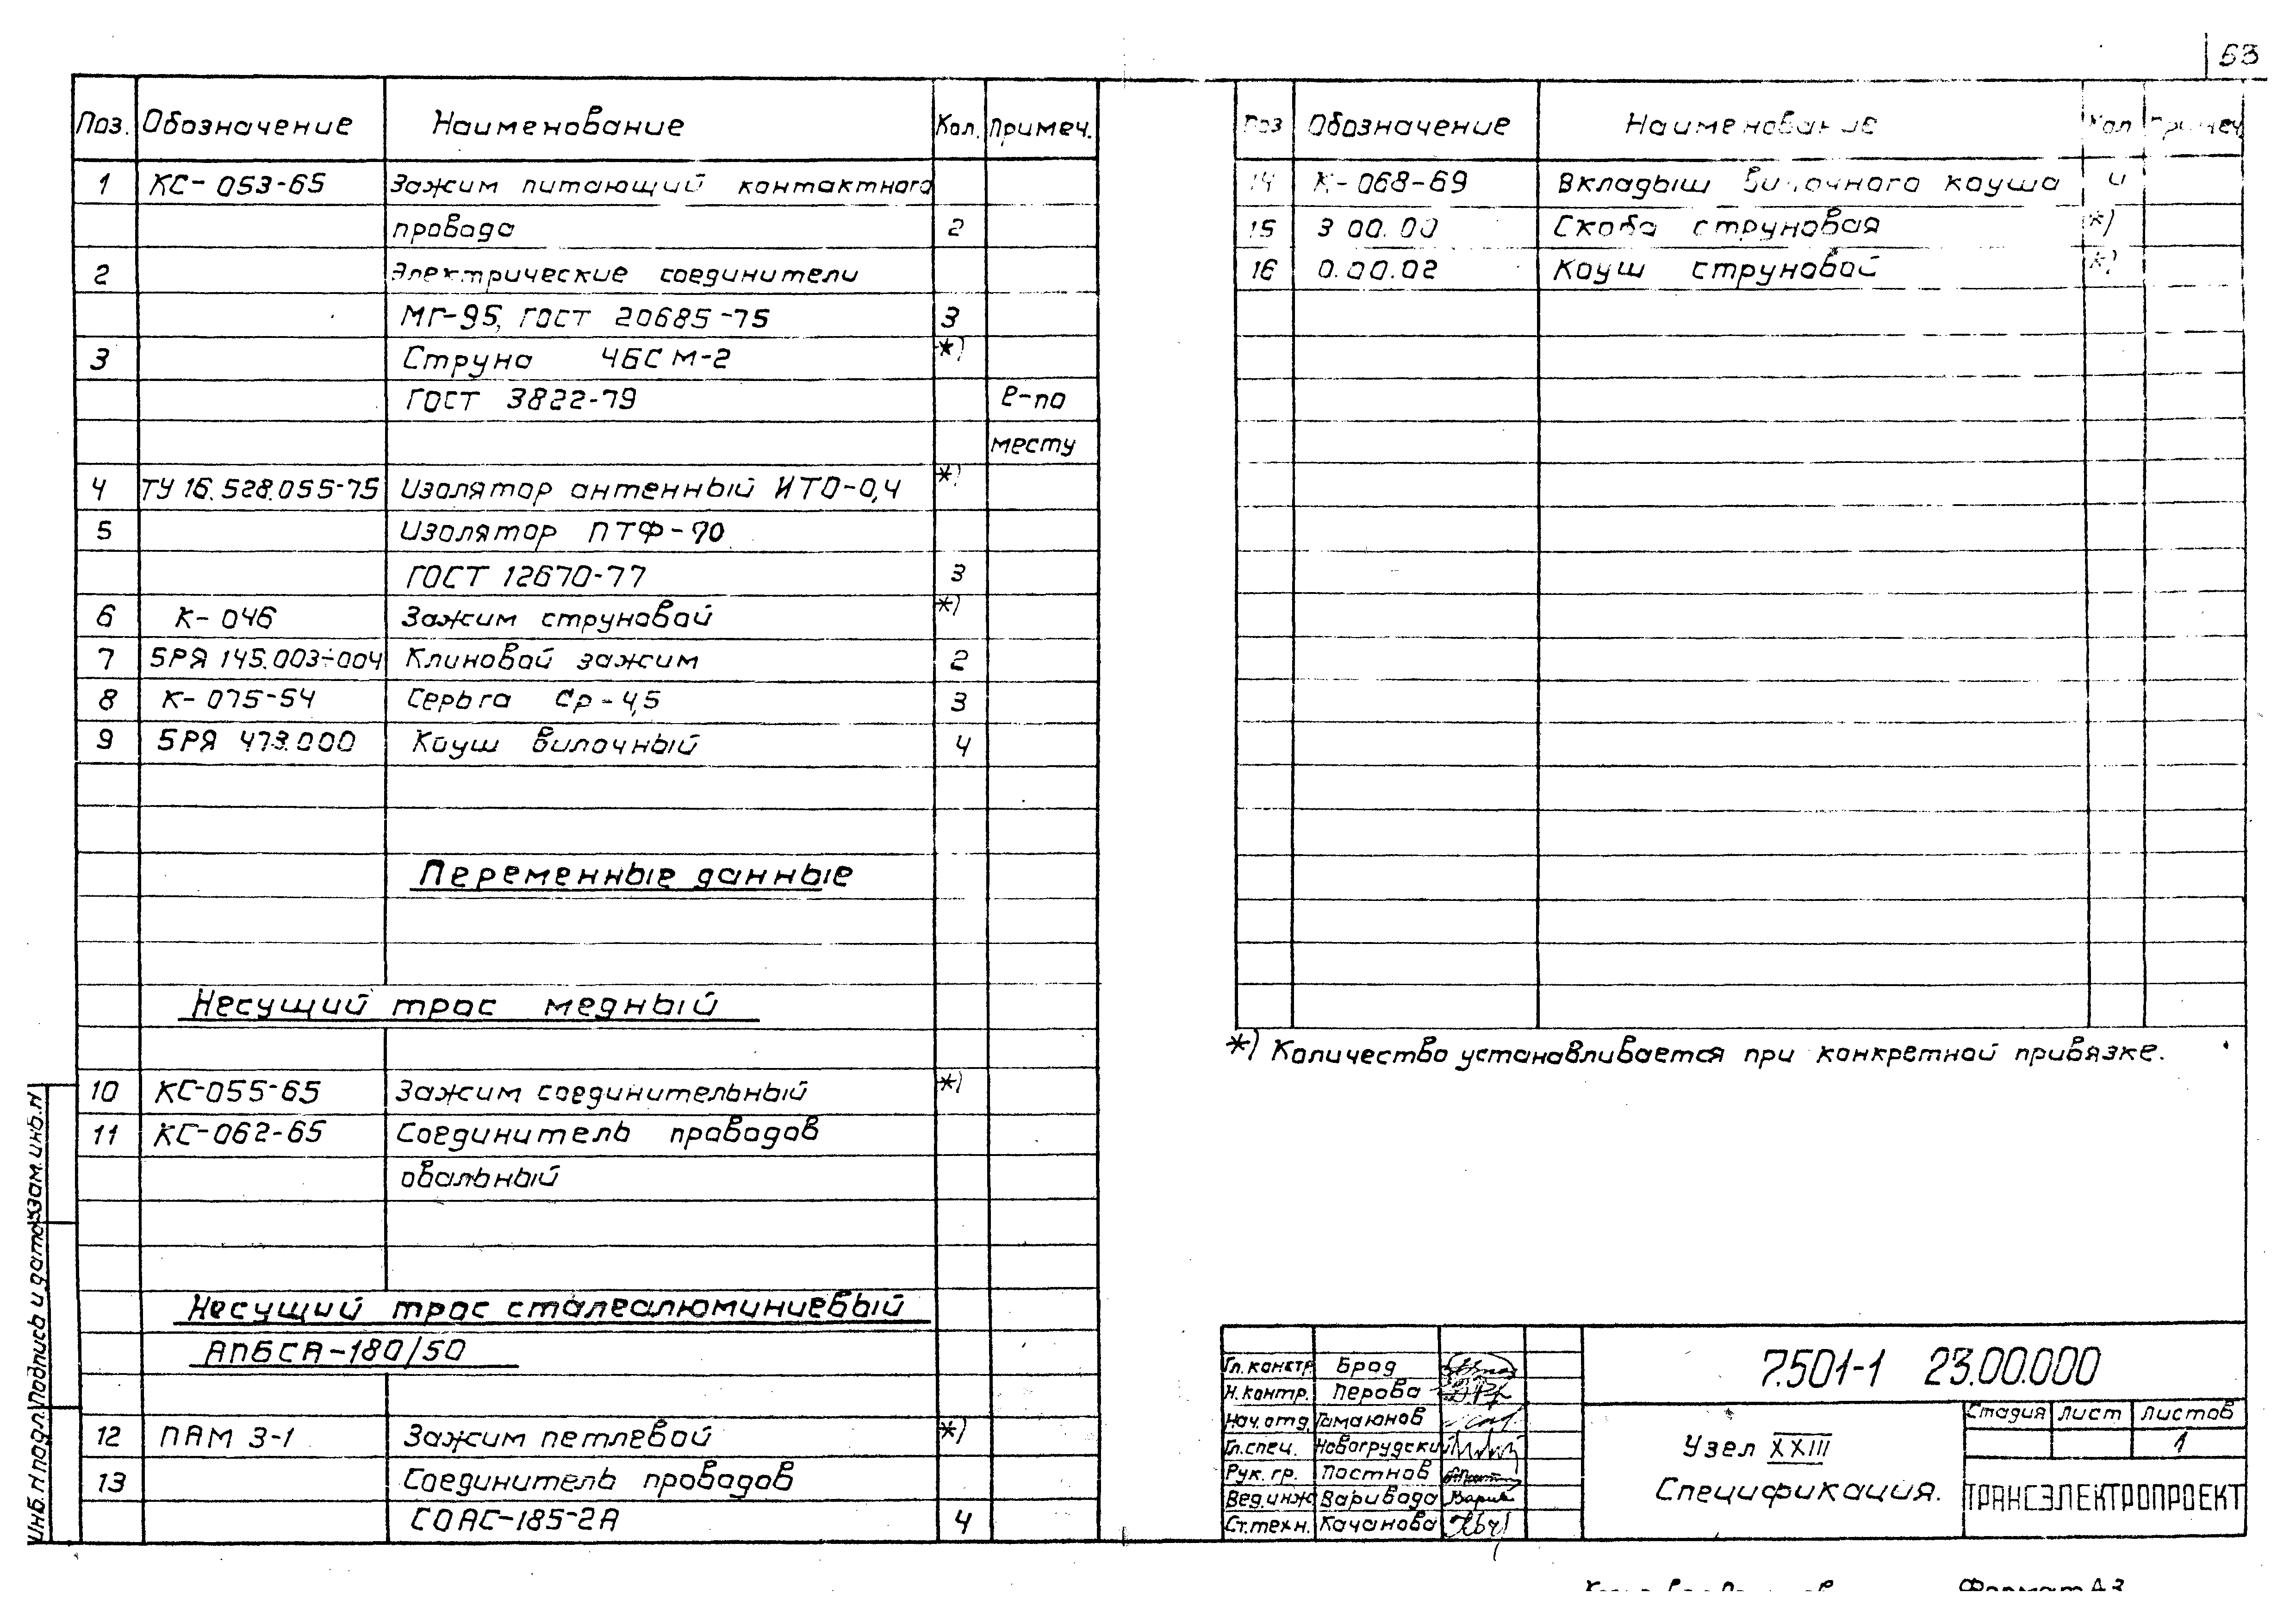 53
Поз. Обозначение Наименование Кол. Примеч.
1 КС-053-65 Зажим питающий контактного
провода 2
2 Электрические соединители
МГ-95, ГОСТ 20685-75 3
3 Струна 4БСМ-2 *)
ГОСТ 3822-79 ℓ-по
месту
4 ТУ 16.528.055-75 Изолятор антенный ИТО-0,4 *)
5 Изолятор ПТФ-70
ГОСТ 12670-77 3
6 К-046 Зажим струновой *)
7 5РЯ 145.003÷004 Клиновой зажим 2
8 К-075-54 Серьга Ср-4,5 3
9 5РЯ 473.000 Коуш вилочный 4
Переменные данные
Несущий трос медный
10 КС-055-65 Зажим соединительный *)
11 КС-062-65 Соединитель проводов
овальный
Несущий трос сталеалюминиевый
АПБСА-180/50
12 ПАМ 3-1 Зажим петлевой *)
13 Соединитель проводов
СОАС-185-2А 4
Поз Обозначение Наименование Кол Примеч
14 К-068-69 Вкладыш вилочного коуша 4
15 3 00.00 Скоба струновая *)
16 0.00.02 Коуш струновой *)
*) Количество устанавливается при конкретной привязке.
Гл. констр. Брод
Н. контр. Перова
Нач. отд.
Гл. спец. Новогрудский
Рук. гр. Постнов
Вед. инж Варивода
Ст. техн. Качанова
7.501-1 23.00.000
Узел XXIII
Спецификация.
Стадия Лист Листов
1
ТРАНСЭЛЕКТРОПРОЕКТ
Инв. N подл. Подпись и дата Взам. инв. N
Формат А3